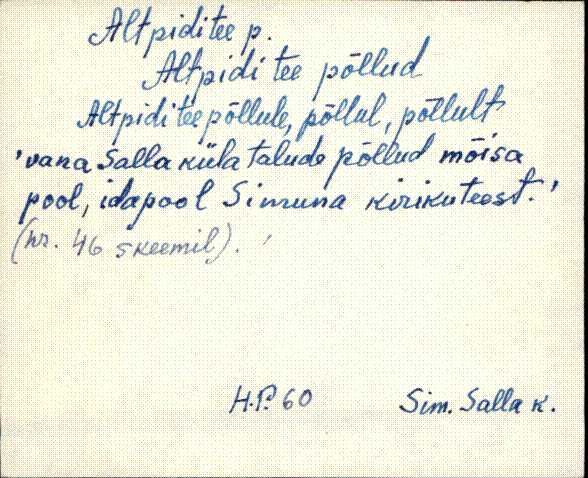 Altpiditee p.
Altpidi tee põllud
Altpidi tee põllule, põllul, põllult
'vana Salla küla talude põllud mõisa
pool, idapool Simuna kirikuteest.'
(nr. 46 skeemil).
H.P. 60 Sim. Salla k.